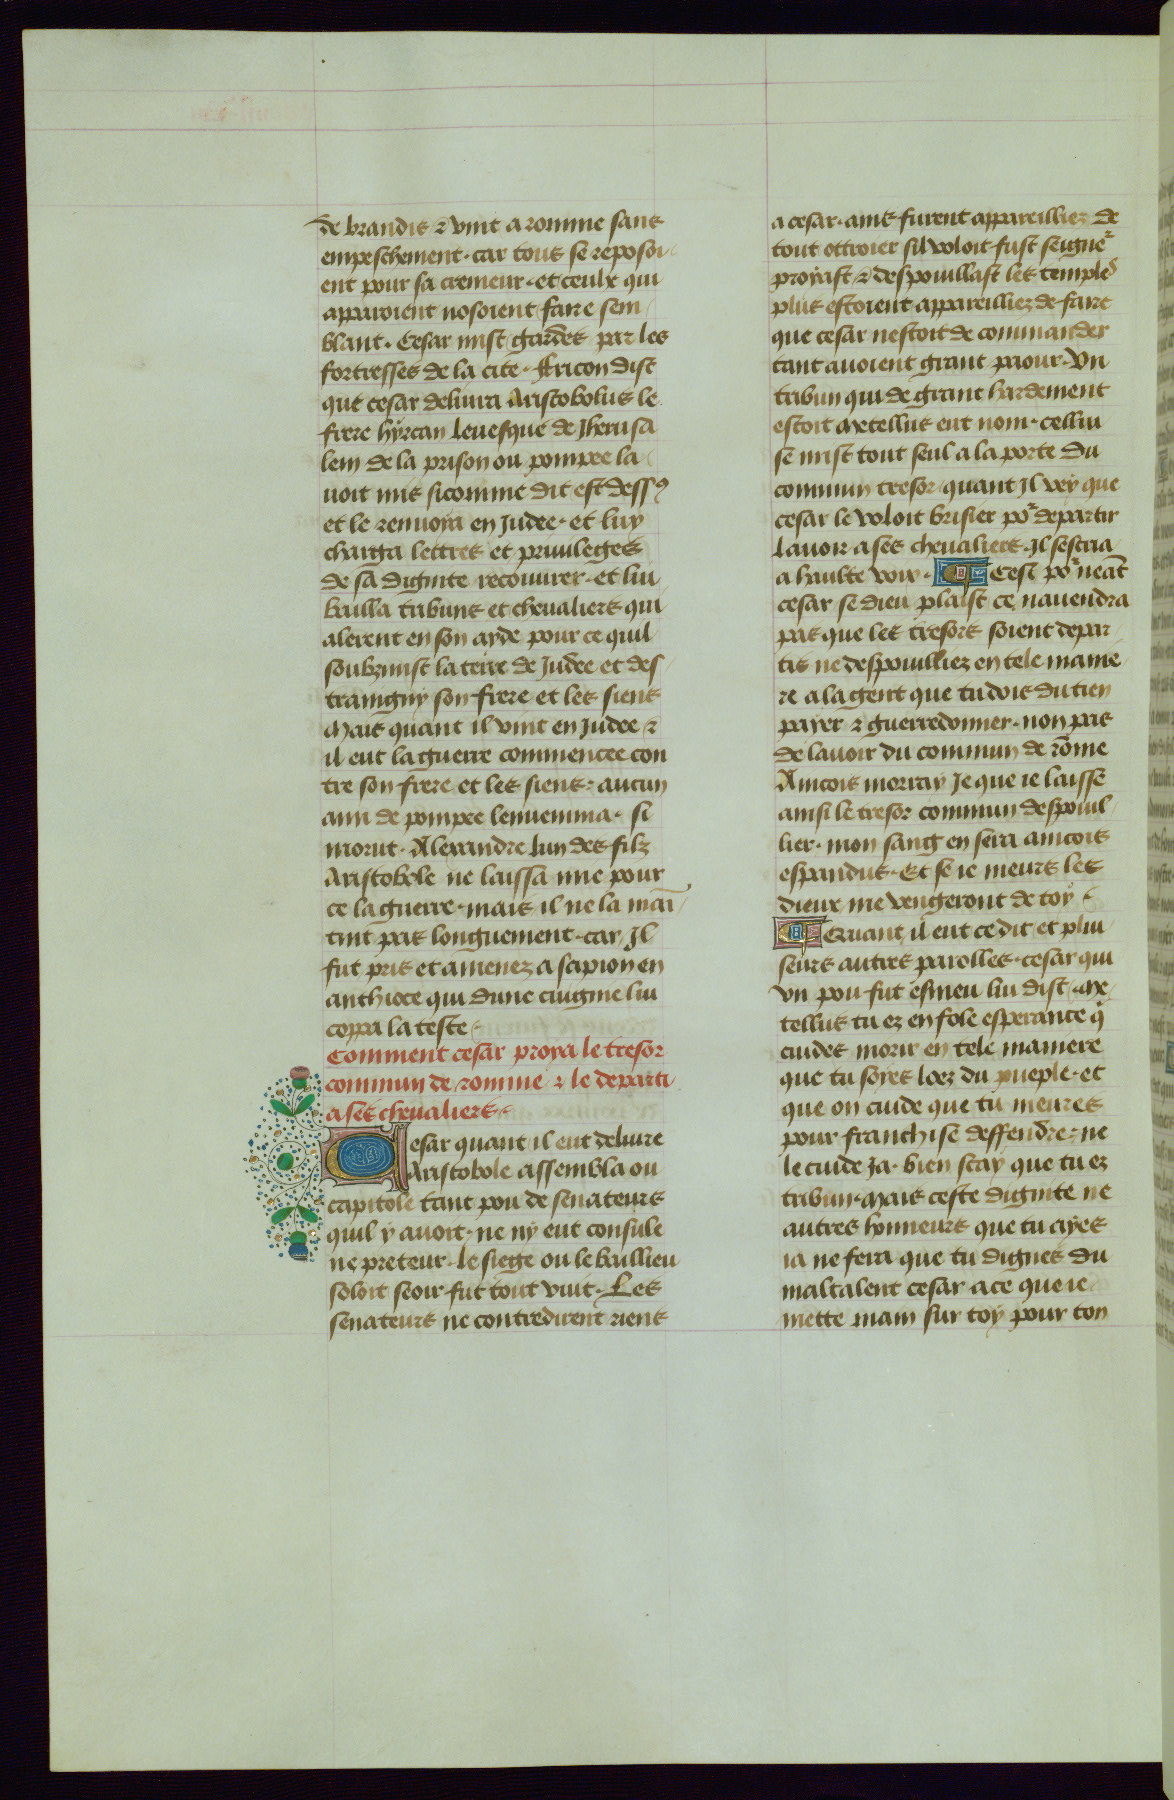 de brandis ⁊ vint a romme sans
empeschement · car tous se reposoi
ent pour sa cremeur · et ceulx qui
apparoient nosoient faire sem
blant · Cesar mist gardes par les
fortresses de la cite · Ericon dist
que cesar deliura Aristobolus le
frere hyrcan leuesque de Jherusa
lem de la prison ou pompee la
uoit mis sicomme dit est dessꝰ
et le renuoya en Judee · et luy
charga lettres et priuileges
de sa dignite recouurer · et lui
bailla tribuns et cheualiers qui
alerent en son ayde pour ce quil
soubzmist la terre de Judee et des
traingny son frere et les siens
Mais quant il vint en Judee ⁊
il eut la guerre commencee con
tre son frere et les siens : aucun
ami de pompee lenuenima · si
morut · Alexandre lun des filz
Aristobole ne laissa mie pour
ce la guerre · mais il ne la mai
tint pas longuement · car Jl
fut pris et amenez a scipion en
anthioce qui dune cuignie lui
coppa la teste
Comment cesar proya le tresor
commun de romme ⁊ le departi
a ses cheualiers
Cesar quant il eut deliure
Aristobole assembla ou
capitole tant pou de senateurs
quil y auoit · ne ny eut consule
ne preteur · le siege ou le baillieu
soloit seoir fut tout vuit · Les
senateurs ne contredirent riens
a cesar · ains furent appareilliez de
tout ottroier sil voloit fust seigne
proyast ⁊ despouillast les temples
plus estoient appareilliez de faire
que cesar nestoit de commander
tant auoient grant paour · Vn
tribun qui de grant hardement
estoit Metellus eut nom · cellui
se mist tout seul a la porte du
commun tresor quant Jl vey que
cesar le voloit brisier po departir
lauoir a ses cheualiers · Jl sescria
a haulte voix · Cest po neat
cesar se dieu plaist ce nauendra
pas que les tresors soient depar
tis ne despouilliez en tele manie
re a la gent que tu dois du tien
payer ⁊ guerredonner · non pas
de lauoir du commun de rome
Aincois morray Je que ie laisse
ainsi le tresor commun despouil
lier · mon sang en sera aincois
espandus · Et se ie meurs les
dieux me vengeront de toy
Quant il eut ce dit et plui
seurs autres parolles · cesar qui
vn pou fut esmeu lui dist · Me
tellus tu ez en fole esperance q
cuides morir en tele maniere
que tu soyes loez du pueple · et
que on cuide que tu meures
pour franchise deffendre : ne
le cuide Ja · bien scay que tu ez
tribun · Mais ceste dignite ne
autres honneurs que tu ayes
ia ne fera que tu dignes du
maltalent cesar a ce que ie
mette main sur toy pour ton